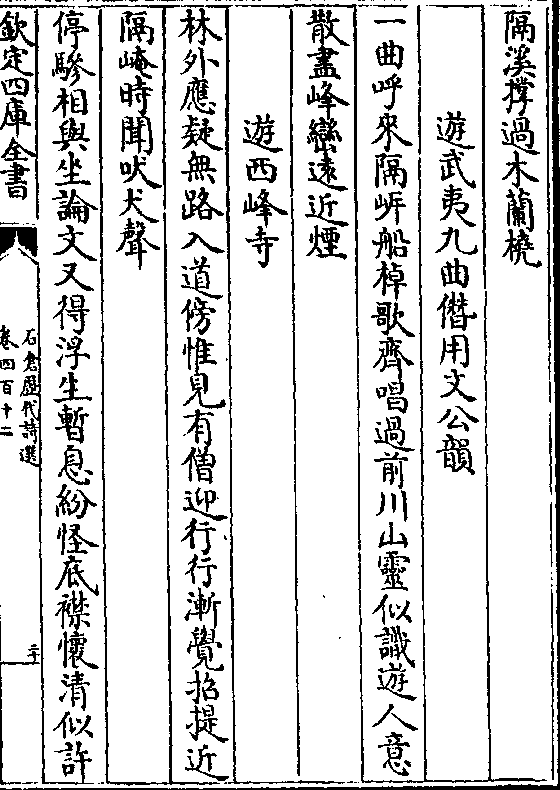 隔溪撑過木蘭橈
遊武夷九曲僭用文公韻
一曲呼來隔㟁船棹歌齊唱過前川山靈似識遊人意
散盡峰巒遠近煙
遊西峰寺
林外應疑無路入道傍惟見有僧迎行行漸覺招提近
隔崦時聞吠犬聲
停驂相與坐論文又得浮生暫息紛怪底襟懷清似許
欽定四庫全書
石倉歴代詩選
卷四百十二
二十